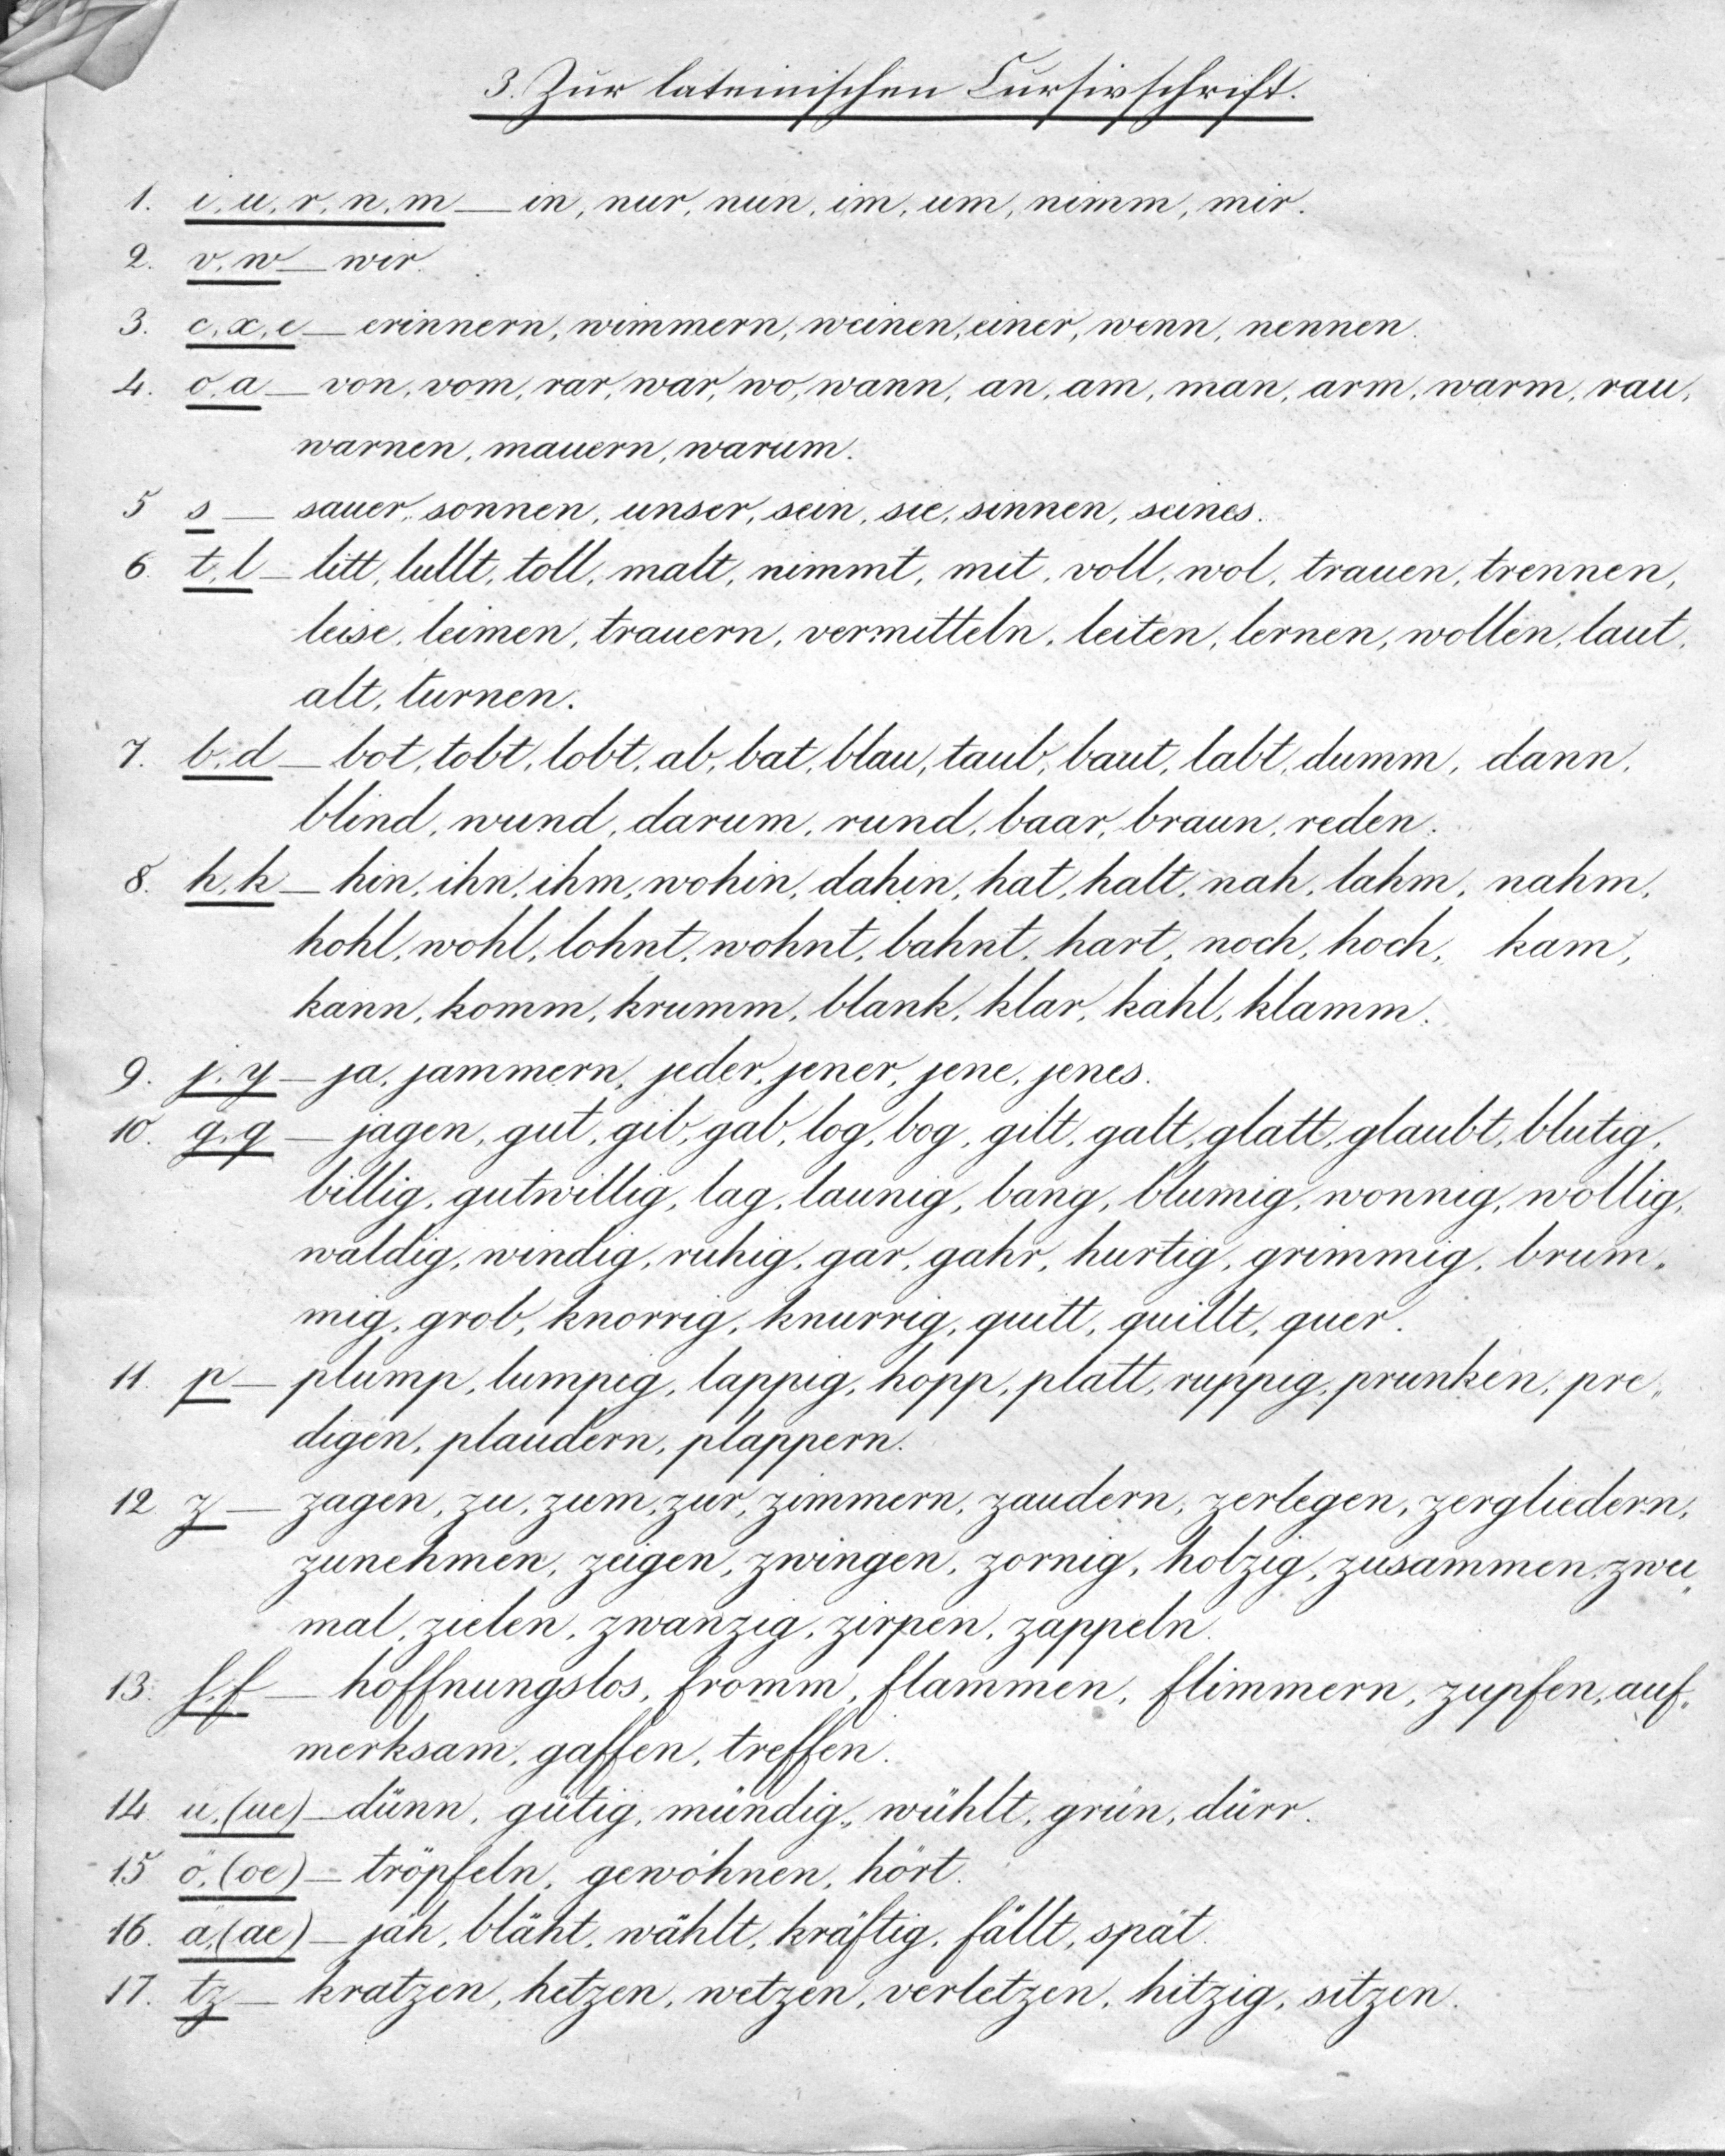 3. Zur lateinischen Cursivschrift.
1. i, u, r, n, m — in, nur, nun, im, um, nimm, mir.
2. v, w — wir.
3. c, x, e — erinnern, wimmern, weinen, einer, wenn, nennen.
4. o, a — von, vom, rar, war, wo, wann, an, am, man, arm, warm, rau,
warnen, mauern, warum.
5 s — sauer, sonnen, unser, sein, sie, sinnen, seines.
6. t, l — litt, lullt, toll, malt, nimmt, mit, voll, wol, trauen, trennen,
leise, leimen, trauern, vermitteln, leiten, lernen, wollen, laut,
alt, turnen.
7. b, d — bot, tobt, lobt, ab, bat, blau, taub, baut, labt, dumm, dann,
blind, wund, darum, rund, baar, braun, reden.
8. h, k — hin, ihn, ihm, wohin, dahin, hat, halt, nah, lahm, nahm,
hohl, wohl, lohnt, wohnt, bahnt, hart, noch, hoch, kam,
kann, komm, krumm, blank, klar, kahl, klamm.
9. j, y — ja, jammern, jeder, jener, jene, jenes.
10. g, q — jagen, gut, gib, gab, log, bog, gilt, galt, glatt, glaubt, blutig,
billig, gutwillig, lag, launig, bang, blumig, wonnig, wollig,
waldig, windig, ruhig, gar, gahr, hurtig, grimmig, brum„
mig, grob, knorrig, knurrig, quitt, quillt, quer.
11. p — plump, lumpig, lappig, hopp, platt, ruppig, prunken, pre„
digen, plaudern, plappern.
12 z — zagen, zu, zum, zur, zimmern, zaudern, zerlegen, zergliedern,
zunehmen, zeigen, zwingen, zornig, holzig, zusammen, zwei„
mal, zielen, zwanzig, zirpen, zappeln.
13. f, f — hoffnungslos, fromm, flammen, flimmern, zupfen, auf„
merksam, gaffen, treffen.
14 ü, (ue) — dünn, gütig, mündig, wühlt, grün, dürr.
15 ö, (oe) — tröpfeln, gewöhnen, hört.
16. ä, (ae) — jäh, bläht, wählt, kräftig, fällt, spät.
17. tz — kratzen, hetzen, wetzen, verletzen, hitzig, sitzen.